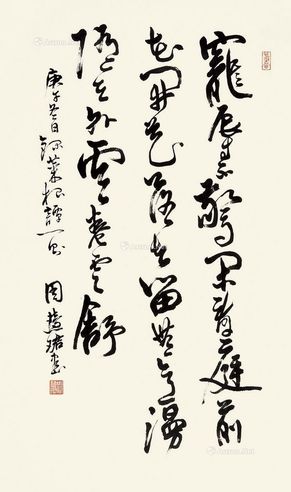 寵辱不驚閑看庭前
花開花落去留無意漫
隨天外雲卷雲舒
庚午日錄菜根譚一 周慧珺書